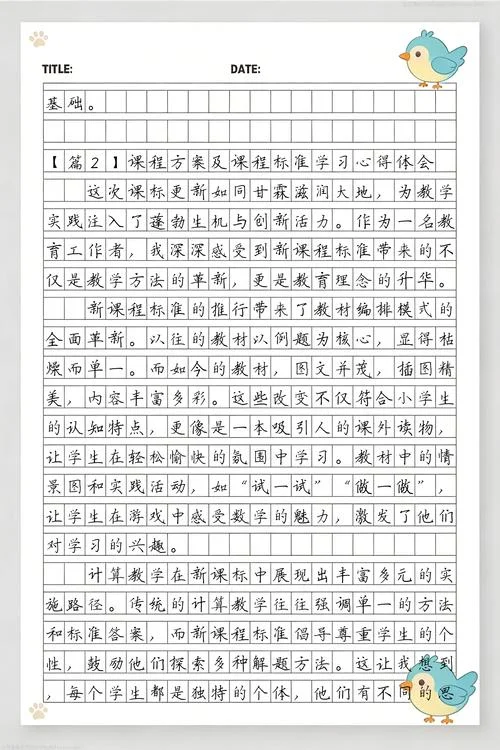 TITLE: DATE:
基础。
【篇2】课程方案及课程标准学习心得体会
这次课标更新如同甘霖滋润大地，为教学
实践注入了蓬勃生机与创新活力。作为一名教
育工作者，我深深感受到新课程标准带来的不
仅是教学方法的革新，更是教育理念的升华。
新课程标准的推行带来了教材编排模式的
全面革新。以往的教材以例题为核心，显得枯
燥而单一。而如今的教材，图文并茂，插图精
美，内容丰富多彩。这些改变不仅符合小学生
的认知特点，更像是一本吸引人的课外读物，
让学生在轻松愉快的氛围中学习。教材中的情
景图和实践活动，如“试一试”“做一做”，
让学生在游戏中感受数学的魅力，激发了他们
对学习的兴趣。
计算教学在新课标中展现出丰富多元的实
施路径。传统的计算教学往往强调单一的方法
和标准答案，而新课程标准倡导尊重学生的个
性，鼓励他们探索多种解题方法。这让我想到
，每个学生都是独特的个体，他们有不同的思